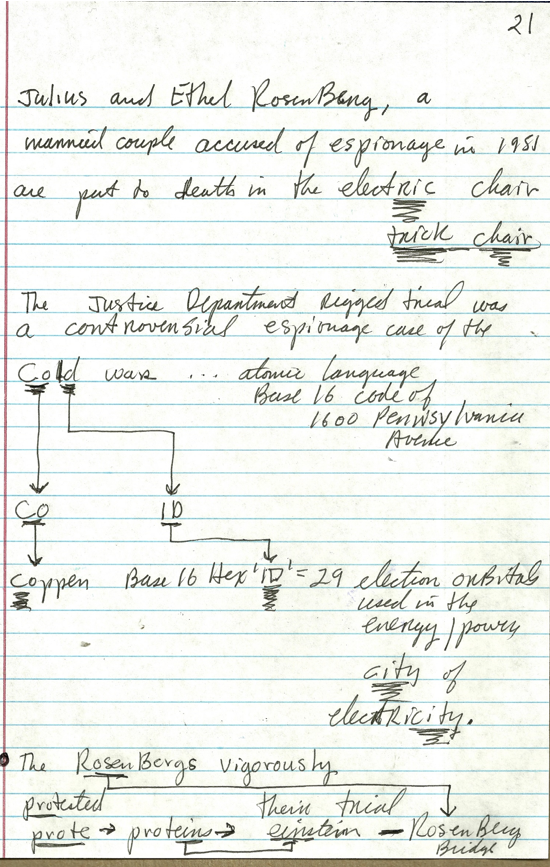 21
Julius and Ethel RosenBerg, a
married couple accused of espionage in 1951
are put to death in the electric chair
trick chair
The Justice Department rigged trial was
a controversial espionage case of the
Cold war ... atomic language
Base 16 code of
1600 Pennsylvania
Avenue
Co 1D
Copper Base 16 Hex '1D' = 29 electron orBitals
used in the
energy / power
city of
electricity.
The RosenBergs vigorously
protested their trial
prote → proteins → einstein - RosenBerg
Bridge